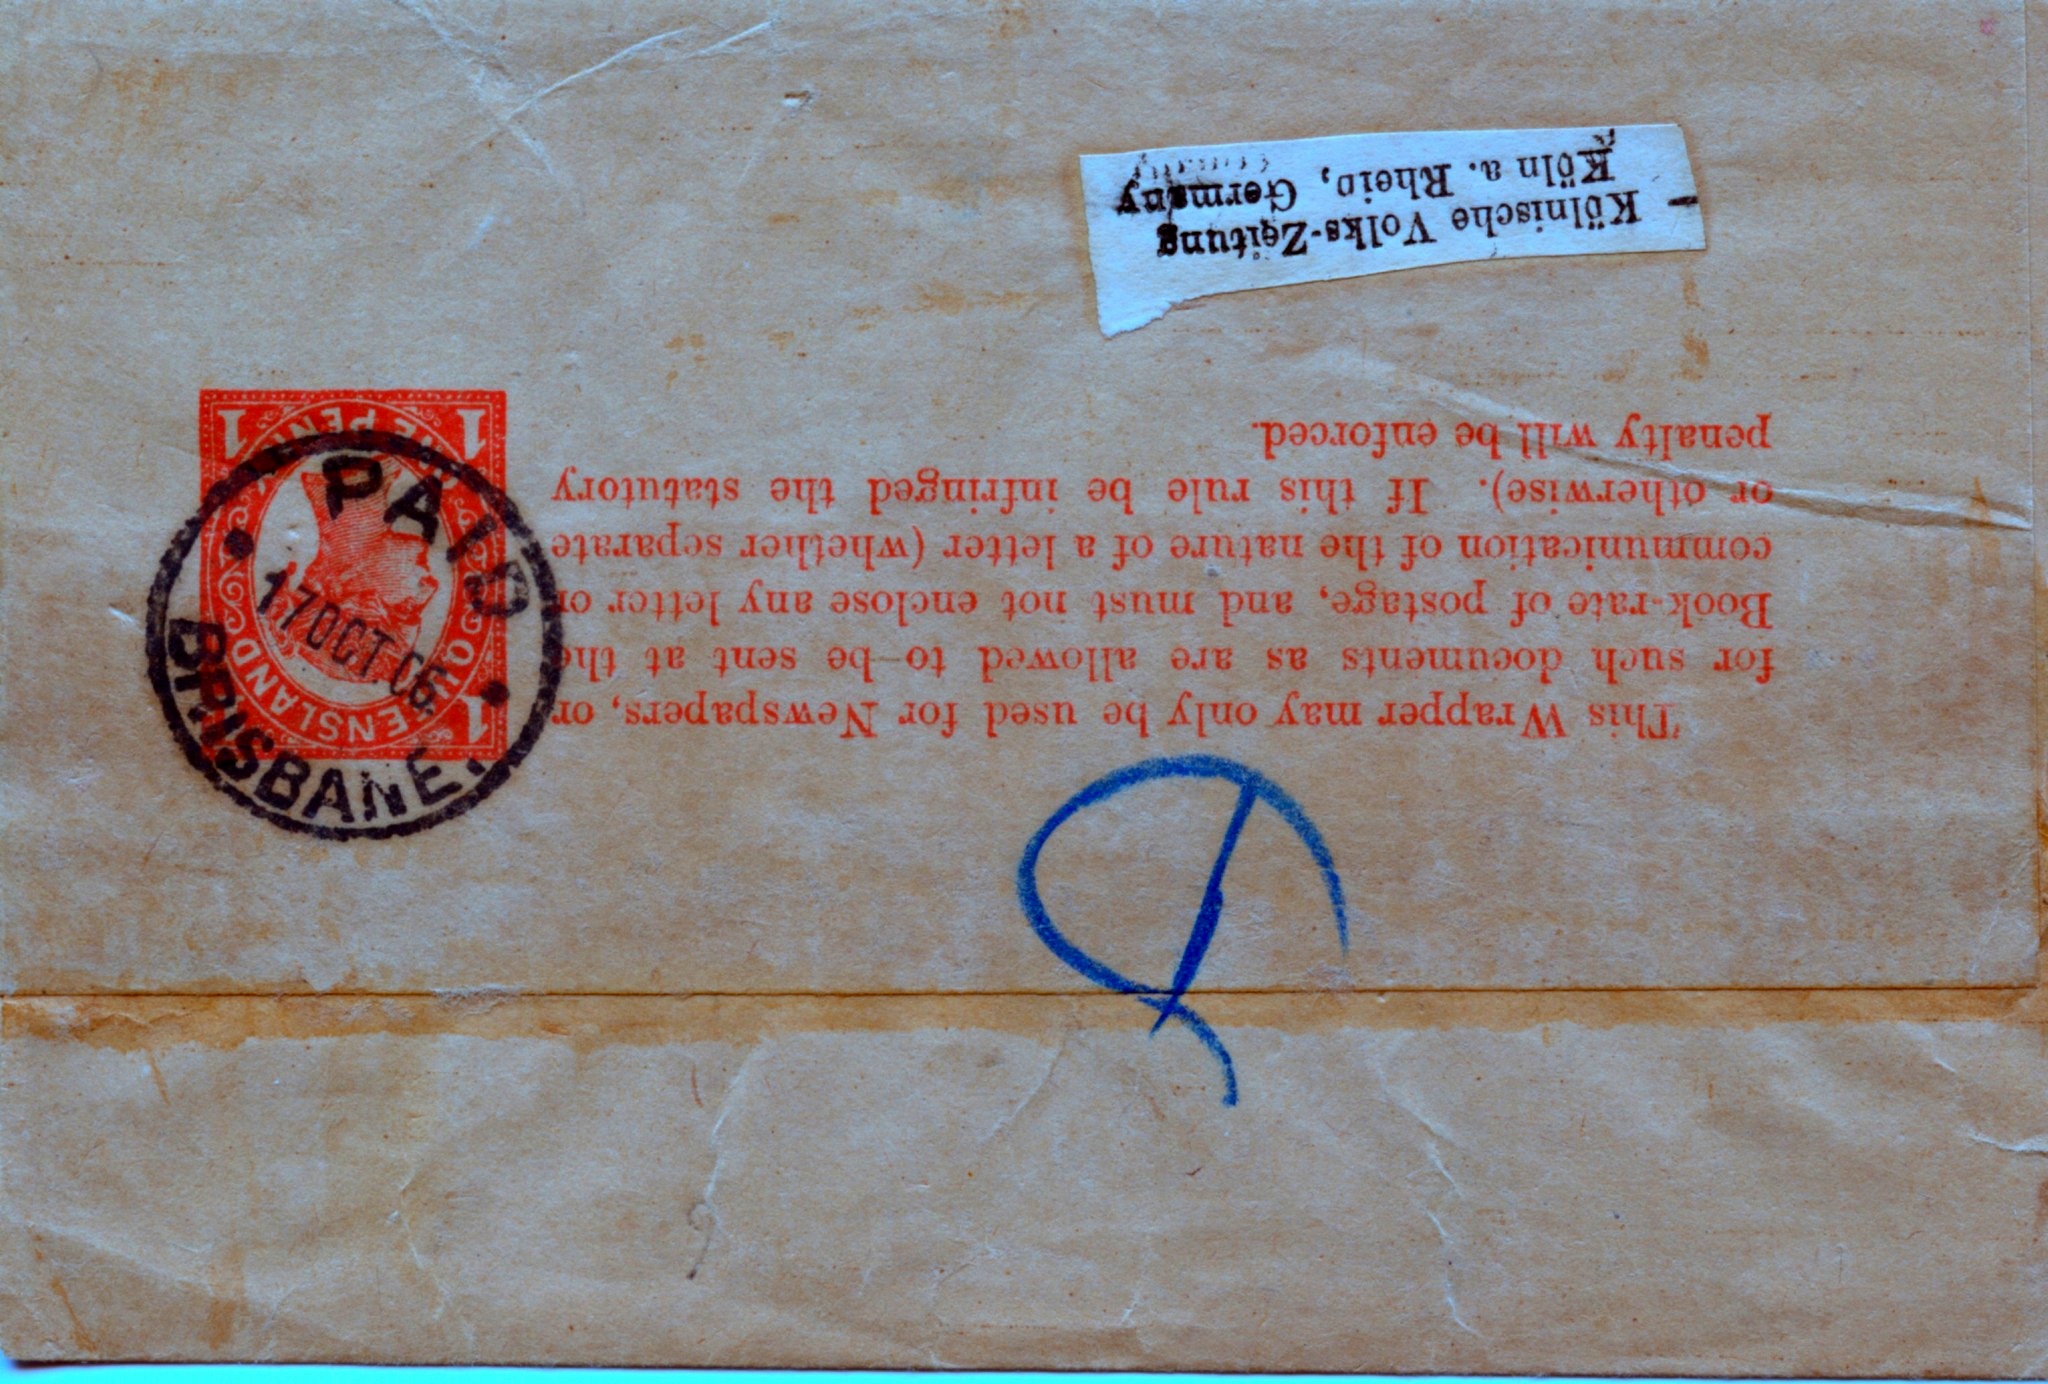 This Wrapper may only be used for Newspapers, or
for such documents as are allowed to be sent at the
Book-rate of postage, and must not enclose any letter or
communication of the nature of a letter (whether separate
or otherwise). If this rule be infringed the statutory
penalty will be enforced.
QUEENSLAND
ONE PENNY
1 1
1 1
PAID
17 OCT 06
BRISBANE.
Kölnische Volks-Zeitung
Köln a. Rhein, Germany